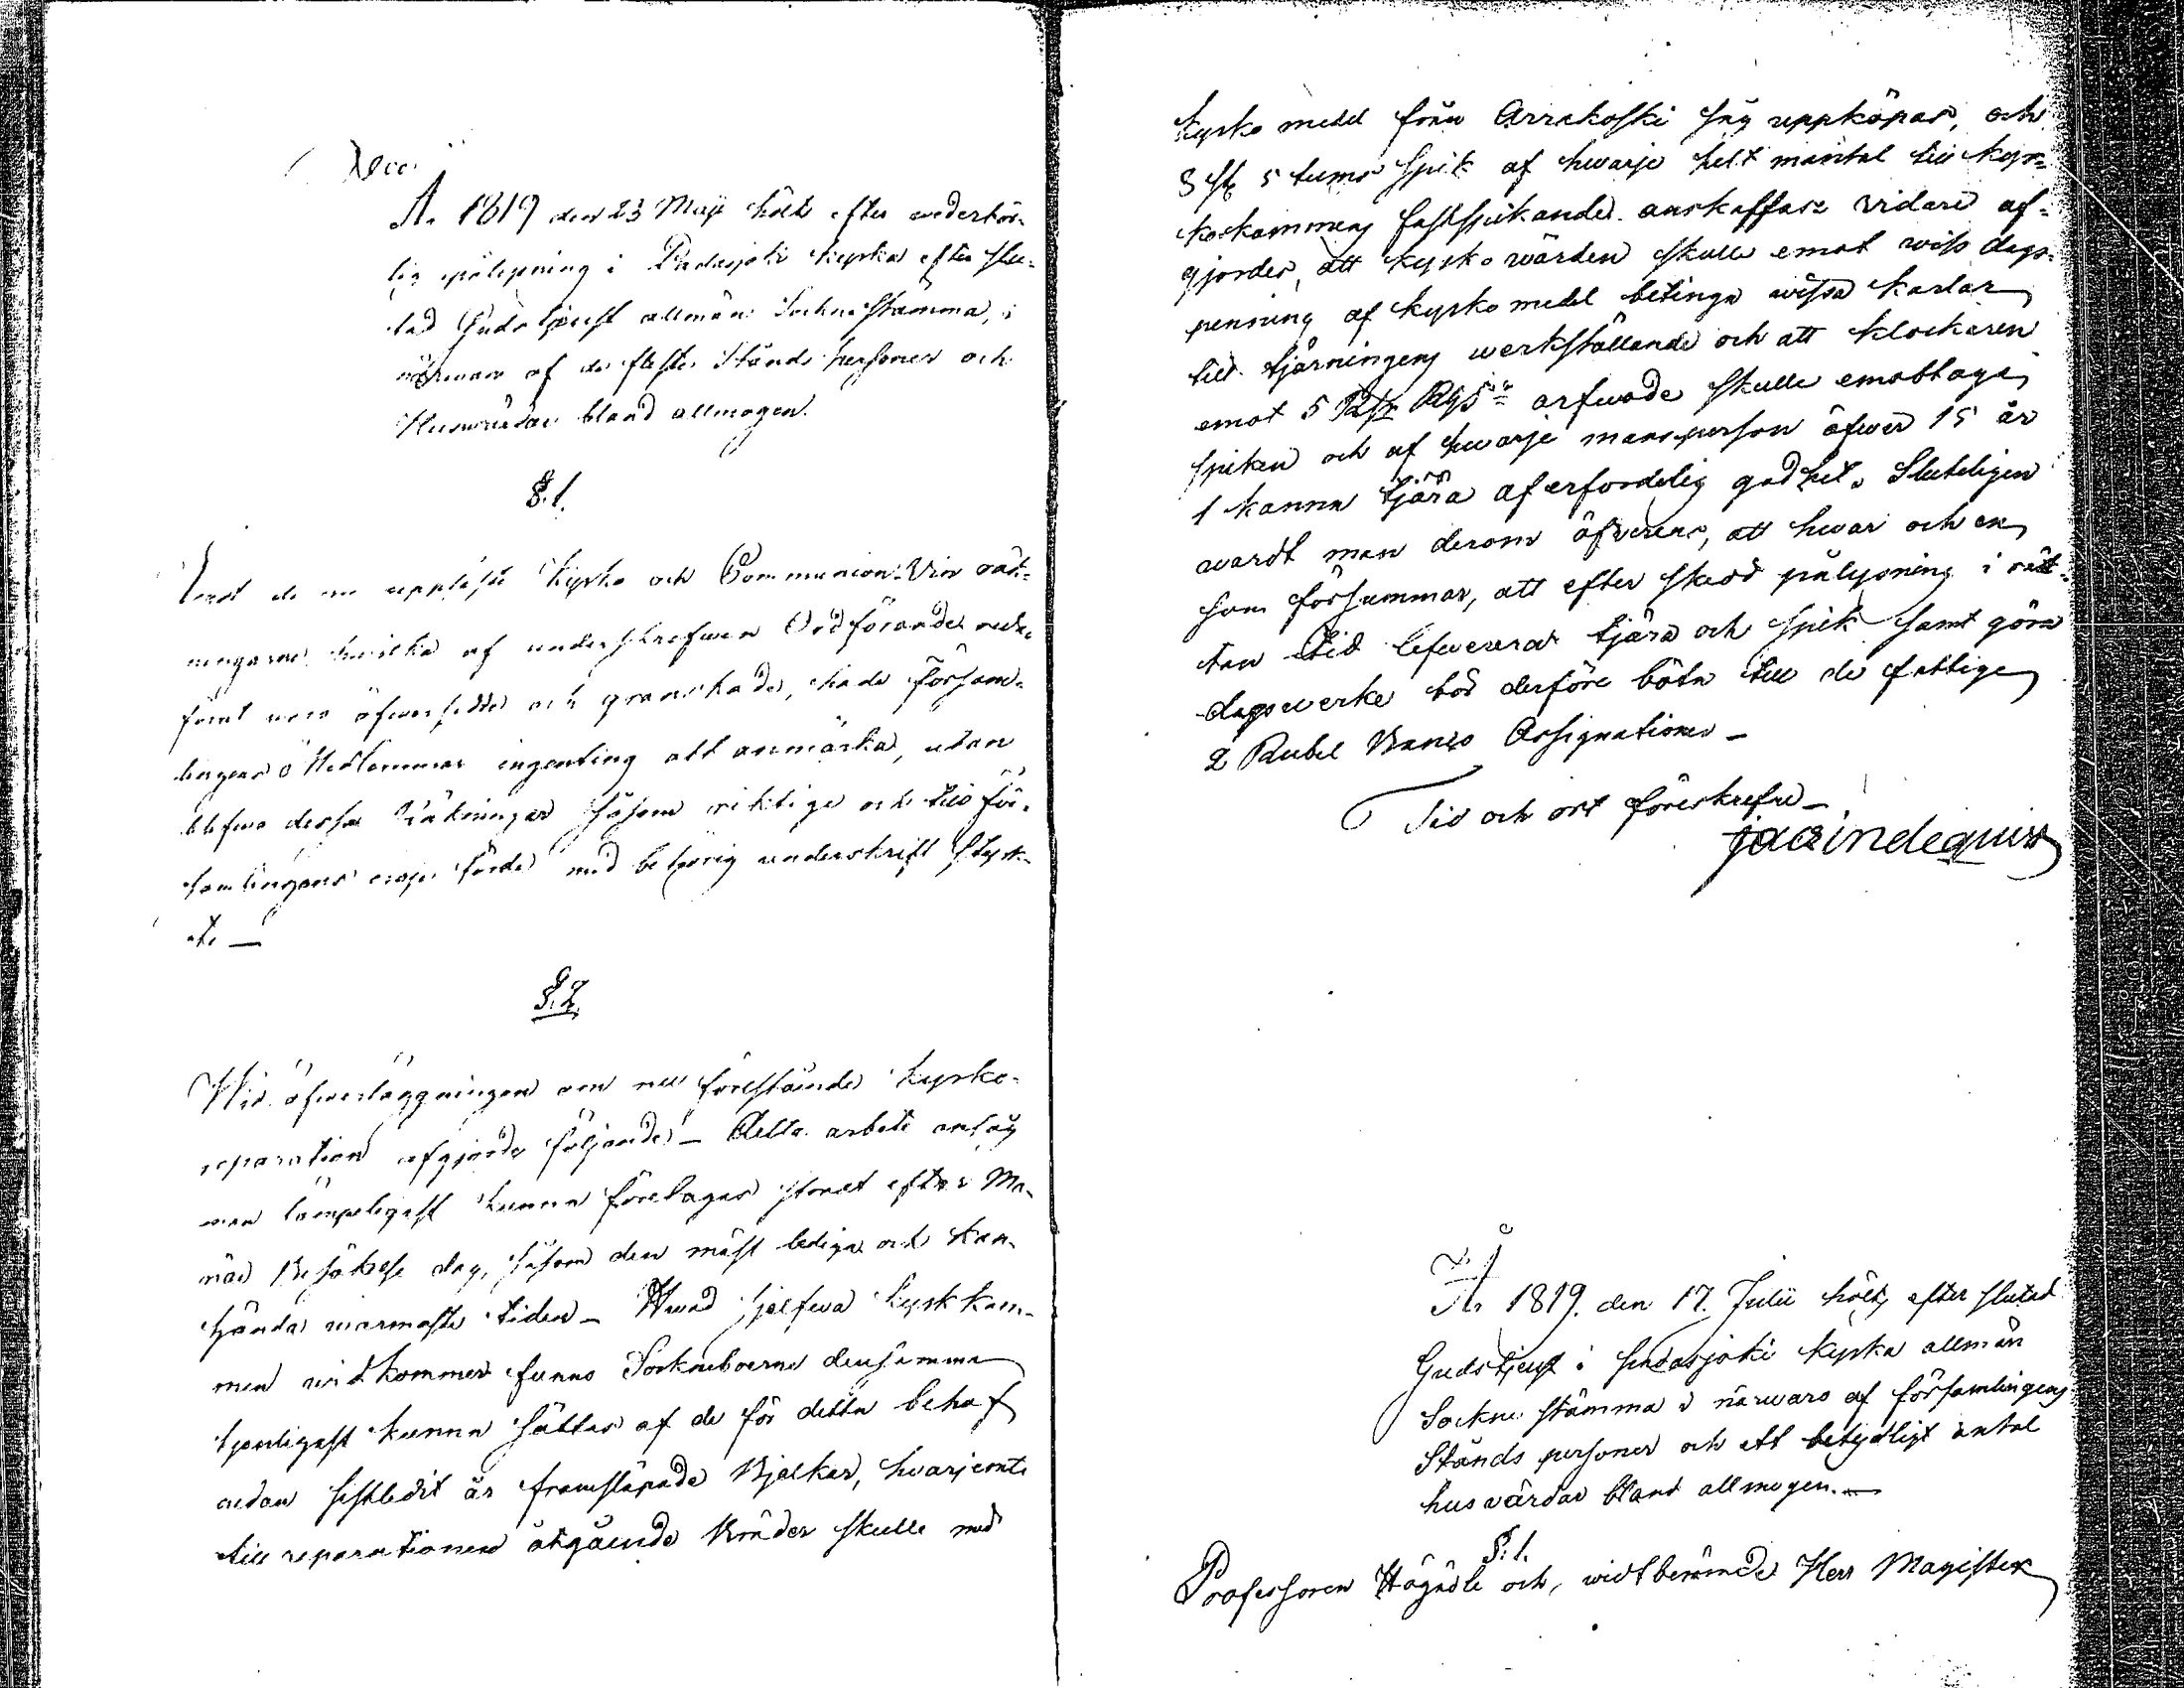 A:o 1819 den 23 Maji hölts efter vederbör-
lig pålysning i Padasjoki kyrka efter slu-
tad Gudstjenst allmän Sockne stämma, i
närwaro af de fleste Stånds Personer och
Huswärdar bland allmogen.
§. 1.
de nu uppläste Kyrko och Communion-Vin räk-
ningarne, hwilka af underskrefwen Ordförande
förut woro öfwersedde och granskade, hade försam-
lingens Medlemmar ingenting att anmärka, utan
blefwo dessa Räkningar såsom riktige och till för-
samlingens med behörig underskrift styrk-
te —
§. 2.
Wid öfwerläggningen om nu förestående kyrko-
reparation afgjordes följande — Detta arbete ansåg
man lämpeligast kunna företagas straxt efter Ma-
riæ Besökelse dag, såsom den mäst lediga och kan-
hända warmaste tiden — Hwad sjelfwa kyrkkam-
men widkommer funno Socknboerne densamma
tjenligast kunna sättas af de för detta behof
redan sistledit år framsläpade Bjelkar, hwarjemte
till reparationen åtgående Bräder skulle med
kyrko medel från Arrakoski såg uppköpas, och
3 st 5 tums spik af hwarje helt mantal till kyr-
kokammens fastspikande anskaffas: vidare af-
gjordes, att kyrko wärden skulle emot wiss dags-
penning af kyrko medel betinga wissa karlar
till tjärningens werkställande och att klockaren
emot 5 arfwode skulle emottaga
spiken och af hwarje mansperson öfwer 15 år
1 kanna tjära af erforderlig godhet. Sluteligen
wardt man derom öfwerens, att hwar och en,
som försummar, att efter skedd pålysning i rät-
tan tid lefwerera tjära och spik samt göra
dagswerke bör derföre böta till de fattiga
2 Rubel Banco Assignationer —
Tid och ort föreskrefne —
A:o 1819. den 17. Julii hölts efter slutad
Gudstjenst i Padasjoki kyrka allmän
Sockne stämma i närwaro af församlingens
Stånds personer och ett betydligt antal
husvärdar bland allmogen. —
§. 1.
Professoren Högädle och, widtberömde Herr Magister